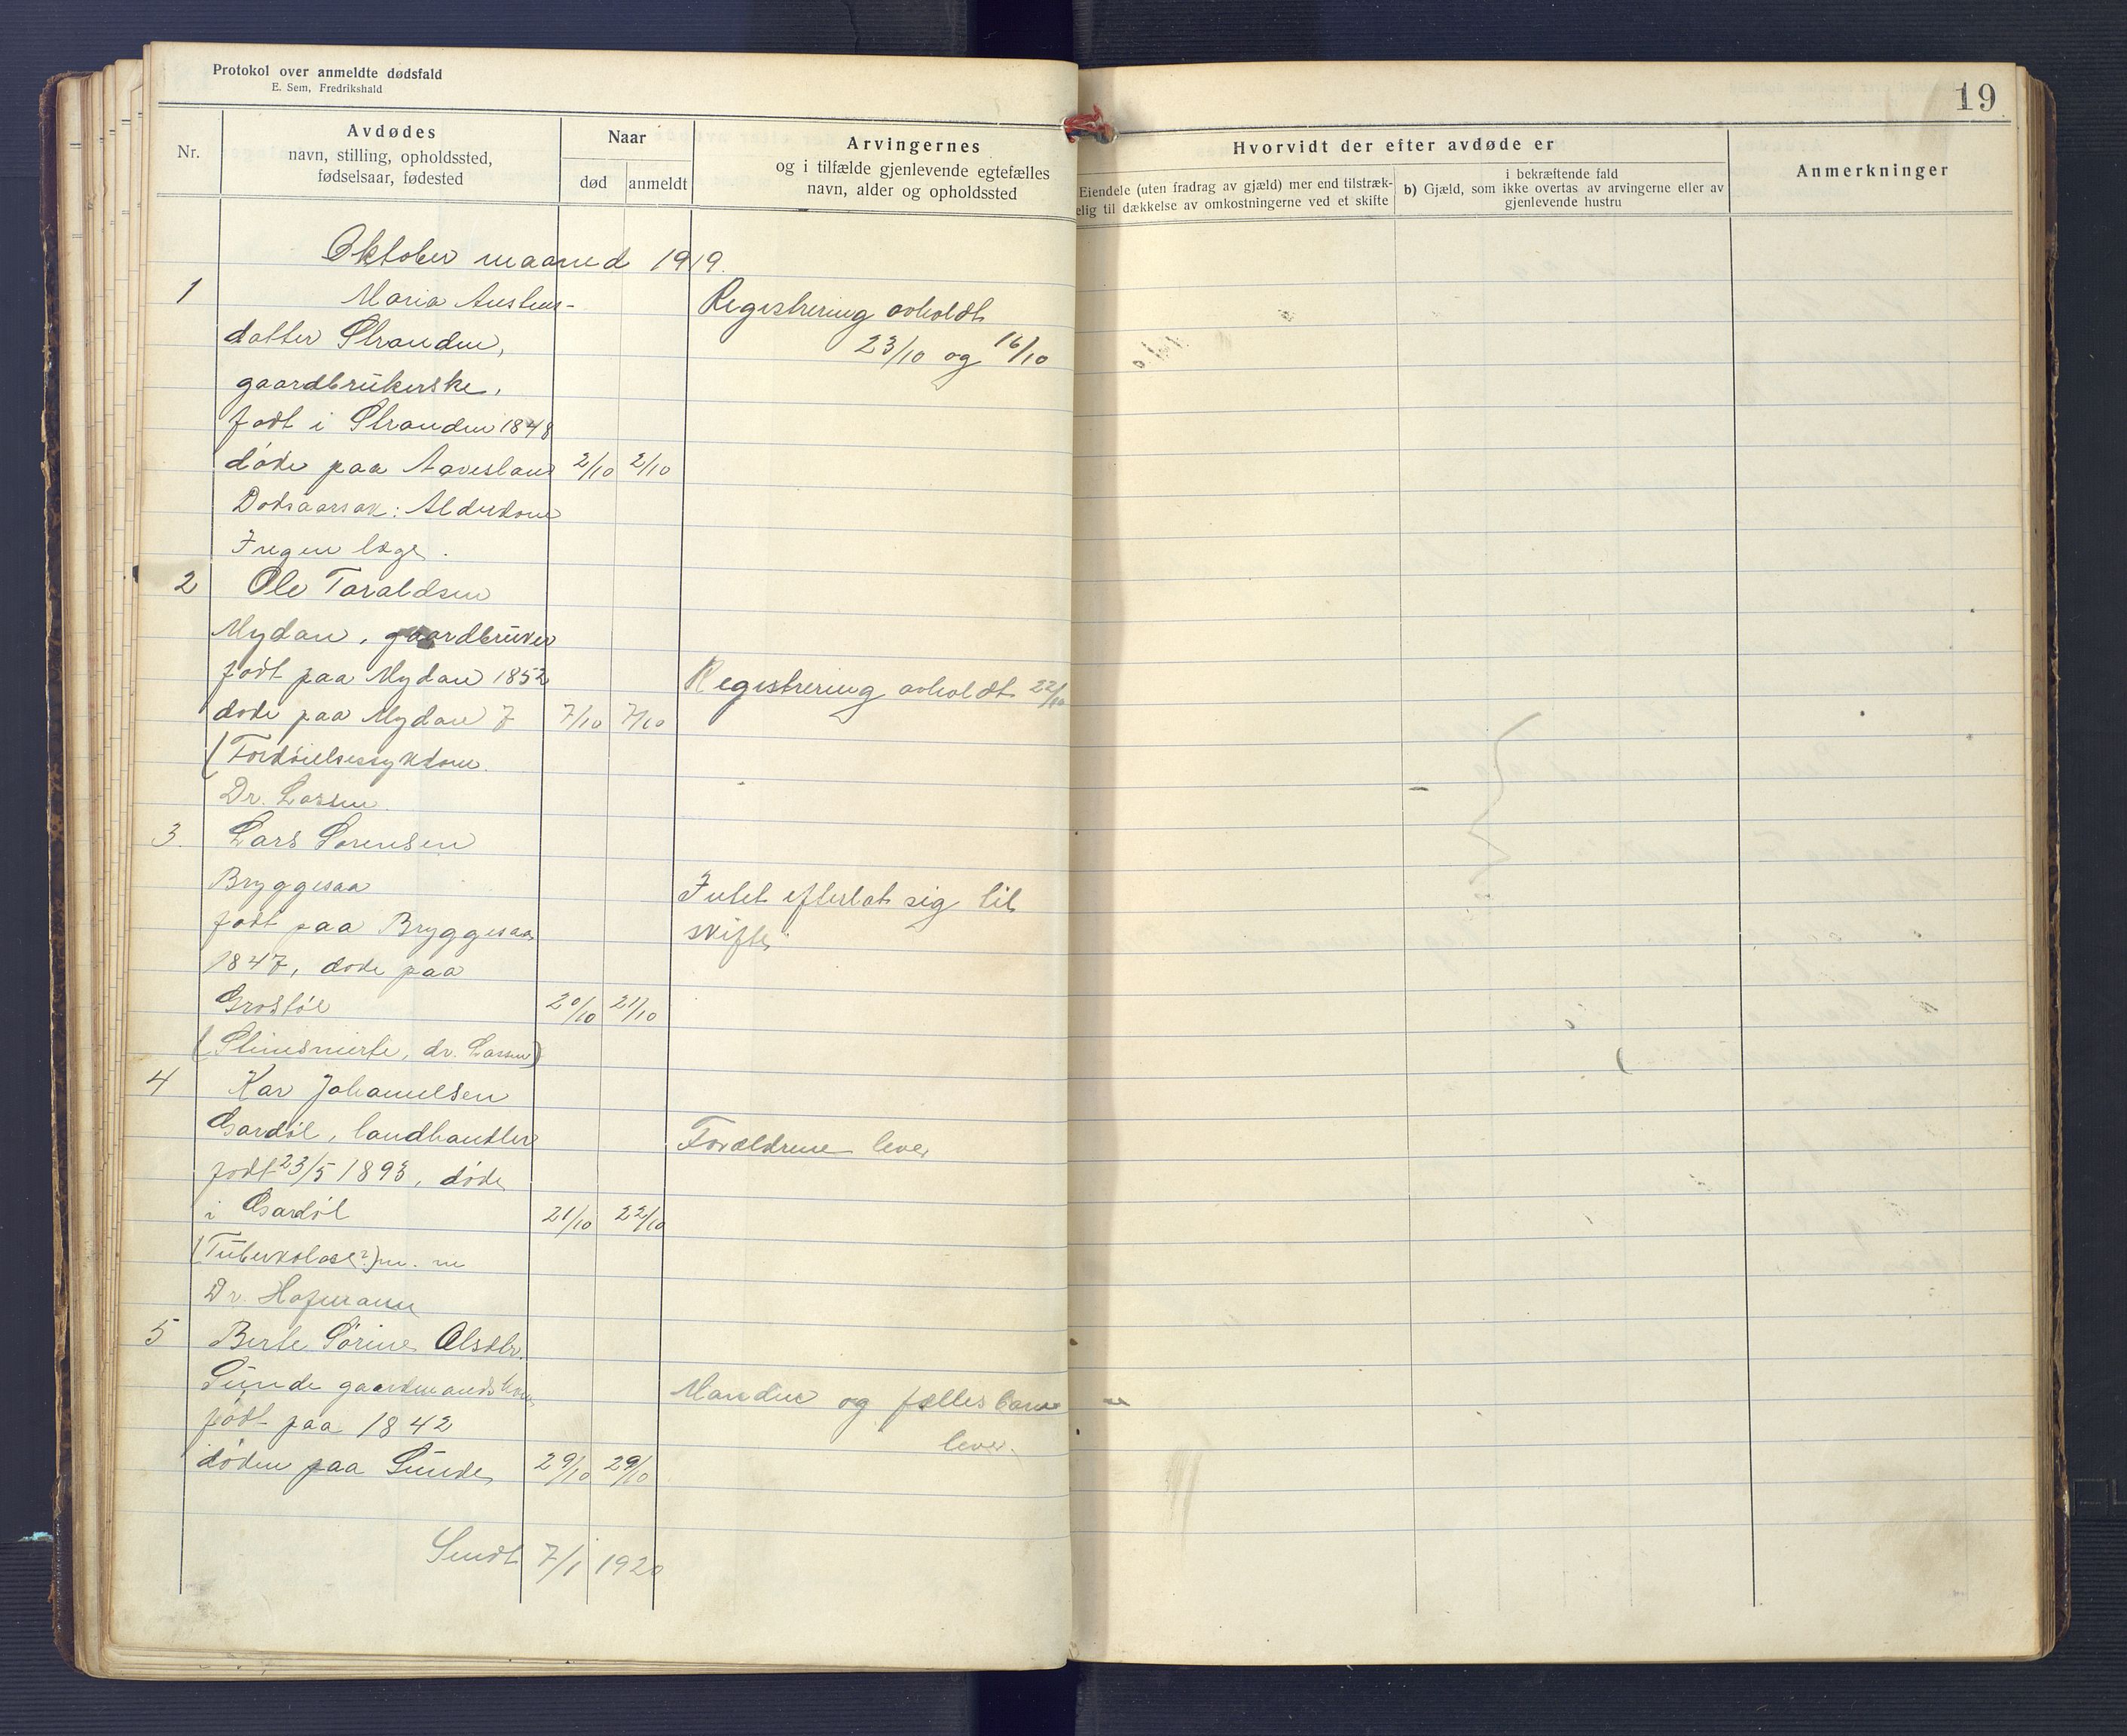 Protokol over anmeldte dødsfald
E. Sem, Fredrikshald
19
Nr.
Avdødes
navn, stilling, opholdssted,
fødselsaar, fødested
Naar
død
anmeldt
Arvingernes
og i tilfælde gjenlevende egtefælles
navn, alder og opholdssted
Hvorvidt der efter avdøde er
Eiendele (uten fradrag av gjæld) mer end tilstræk-
elig til dækkelse av omkostningerne ved et skifte
i bekræftende fald
b) Gjæld, som ikke overtas av arvingerne eller av
gjenlevende hustru
Anmerkninger
Oktober maaned 1919.
1 Maria Austens-
datter Stranden,
gaardbrukerske,
født i Stranden 1848
døde paa Aavesland 2/10 2/10
Dødsaarsak: Alderdom
Ingen læge.
Registrering avholdt
23/10 og 16/10
2 Ole Taraldsen
Mydan, gaardbruker
født paa Mydan 1852
døde paa Mydan 7 7/10 7/10
(Fordøielsessykdom.
Dr. Lassen.
Registrering avholdt 22/10
3. Lars Sørensen
Bryggesaa
født paa Bryggesaa
1847, døde paa
Grostøl 20/10 21/10
(dr. Lassen)
Intet efterlot sig til
skifte.
4 Kar Johannelsen
Gardøl, landhandler
født 23/5 1893, døde
i Gardøl 21/10 22/10
(Tuberkolose?) m. m
Dr. Hofmann
Forældrene lever
5 Berte Sørine Olsdtr.
Sunde gaardmandskone
født paa 1842
døden paa Sunde 29/10 29/10
Manden og fælles barn
lever.
Sendt 7/1 1920